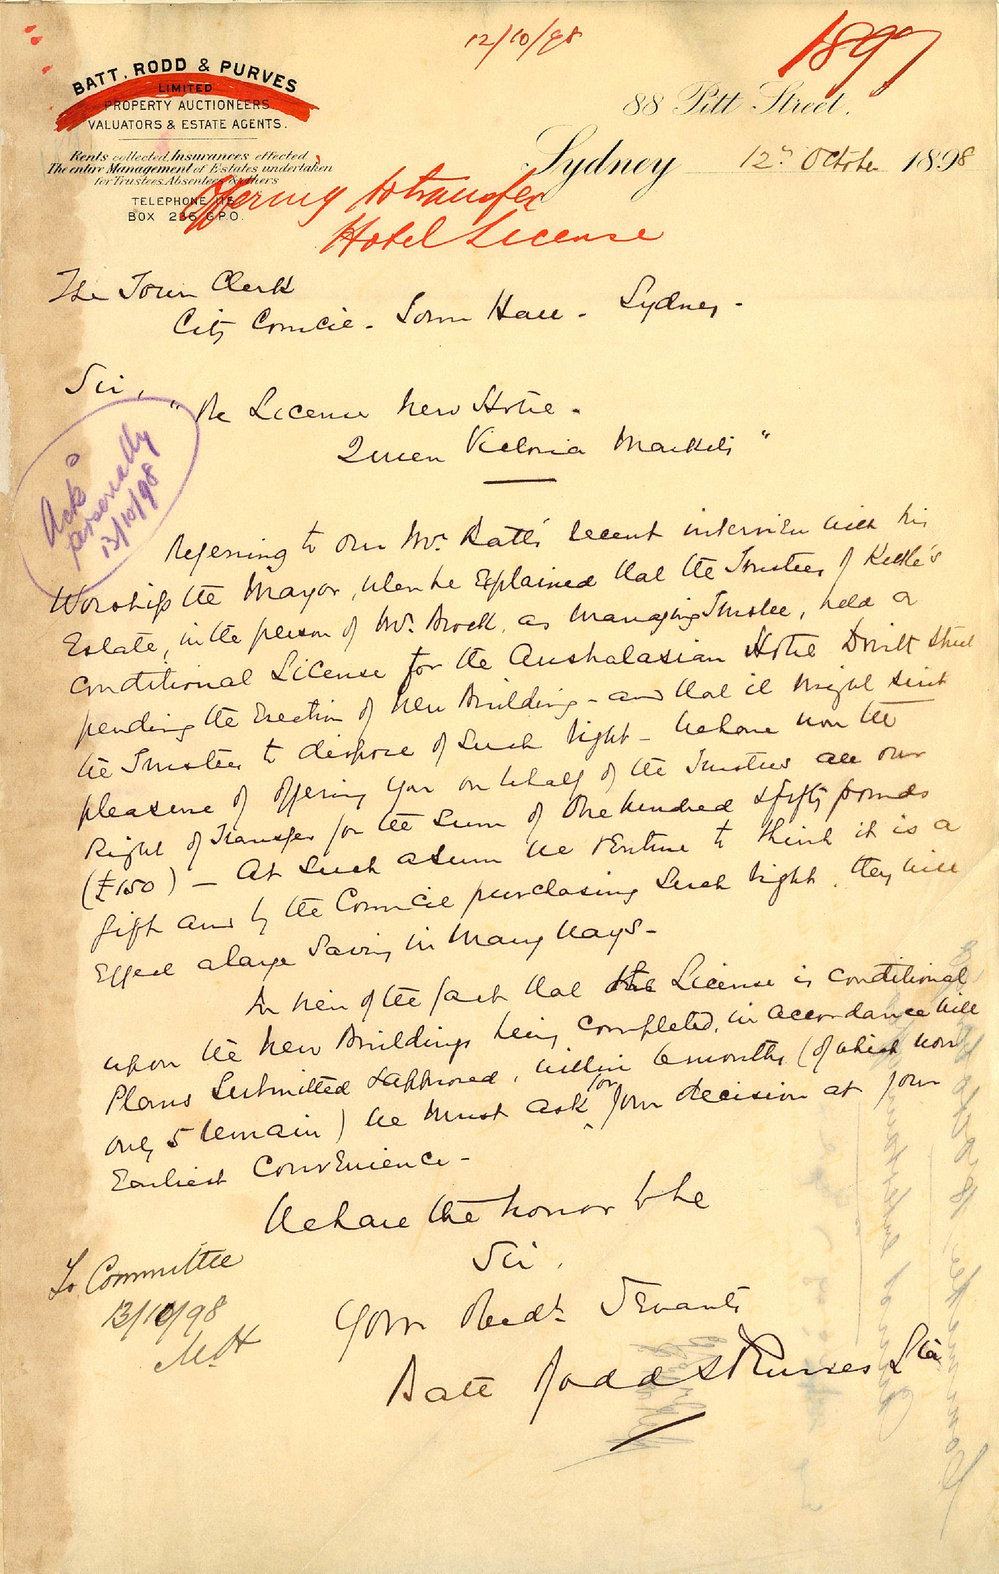 12/10/98
1897
BATT, RODD & PURVES
LIMITED
PROPERTY AUCTIONEERS
VALUATORS & ESTATE AGENTS.
Rents collected, Insurances effected,
The entire Management of Estates undertaken
for Trustees, Absentees & others
TELEPHONE
BOX 235 G.P.O.
88 Pitt Street.
Sydney 12th October 1898
Offering to transfer
Hotel License
The Town Clerk
City Council - Town Hall - Sydney -
Sir,
"Re License New Hotel -
Queen Victoria Markets"
Ackd
personally
13/10/98
Referring to our Mr. Batt's recent interview with his
Worship the Mayor, when he Explained that the Trustees of Keele's
Estate, in the person of Mr. Brock, as Managing Trustee, held a
conditional License for the Australasian Hotel Druitt Street
pending the Erection of New Building - and that it might suit
the Trustees to dispose of Such right - We have now the
pleasure of offering you on behalf of the Trustees all our
Right of Transfer for the Sum of One hundred & fifty pounds
(£150) - At Such a Sum we venture to think it is a
gift and by the Council purchasing Such right, they will
Effect a large Saving in Many Ways -
In view of the fact that the License is conditional
upon the New Buildings being completed, in accordance with
Plans Submitted & approved, within 6 months (of which now
only 5 remain) we must ask for your decision at your
Earliest Convenience -
We have the honor to be
Sir,
Your Obedt. Servants
Batt Rodd & Purves Ltd
To Committee
13/10/98